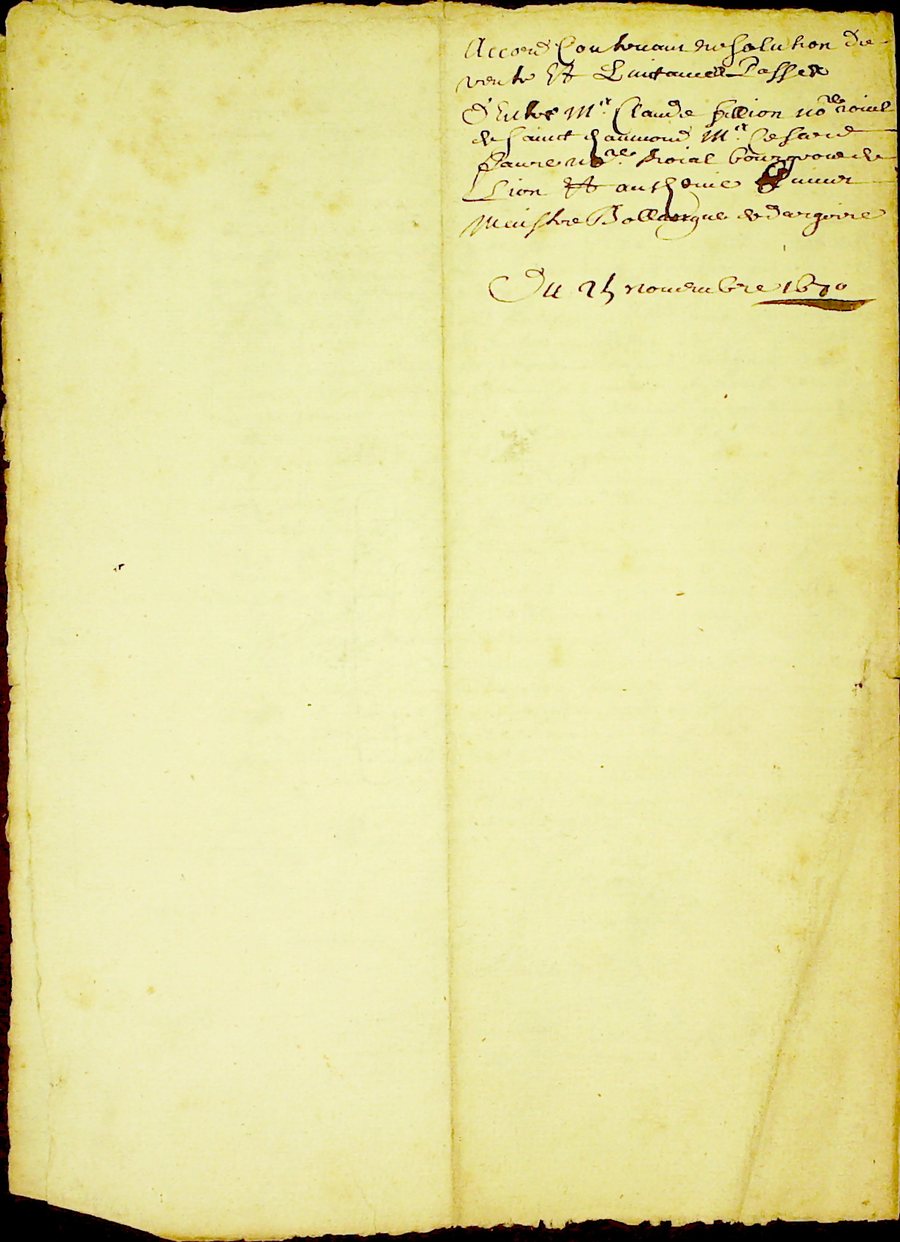 Accord Contenant resolution de
vente Et Quictance Passée
D'Entre Mr. Claude fillion no.re roial
de sainct chaumond Mr.
faure no.re Roial bourgeois de
Lion Et anthoine
de dargoire
Du 25 novembre 1670